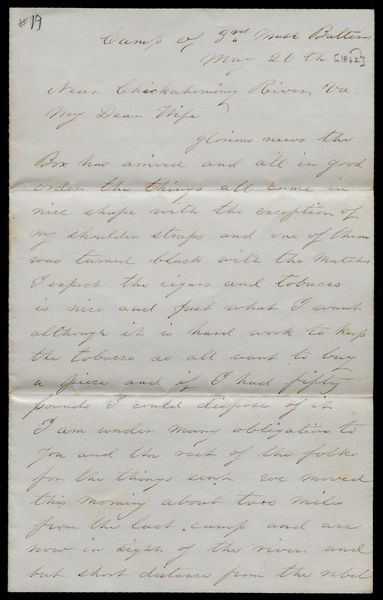 #19
Camp of 3rd Mass Battery
May 26th [1862]
Near Chickahominy River Va
My Dear Wife
glorious news the
Box has arrived and all in good
order the things all came in
nice shape with the exception of
my shoulder straps and one of them
was turned black with the matches
I expect the cigars and tobacco
is nice and just what I want
although it is hard work to keep
the tobacco as all want to buy
a piece and if I had fifty
pounds I could dispose of it
I am under many obligations to
you and the rest of the folks
for the things sent we moved
this morning about two miles
from the last camp and are
now in sight of the river and
but short distance from the rebel